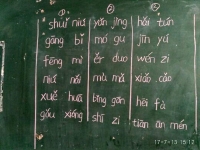 ① ② ③
shuǐ niú yǎn jīng hǎi tún
gāng bǐ mó gu jīn yú
fēng mì ěr duo wén zi
niú nǎi mù mǎ xiǎo cǎo
xuě huā bǐng gān hēi fà
gǒu xióng shī zi tiān ān mén
17-7-13 15:12